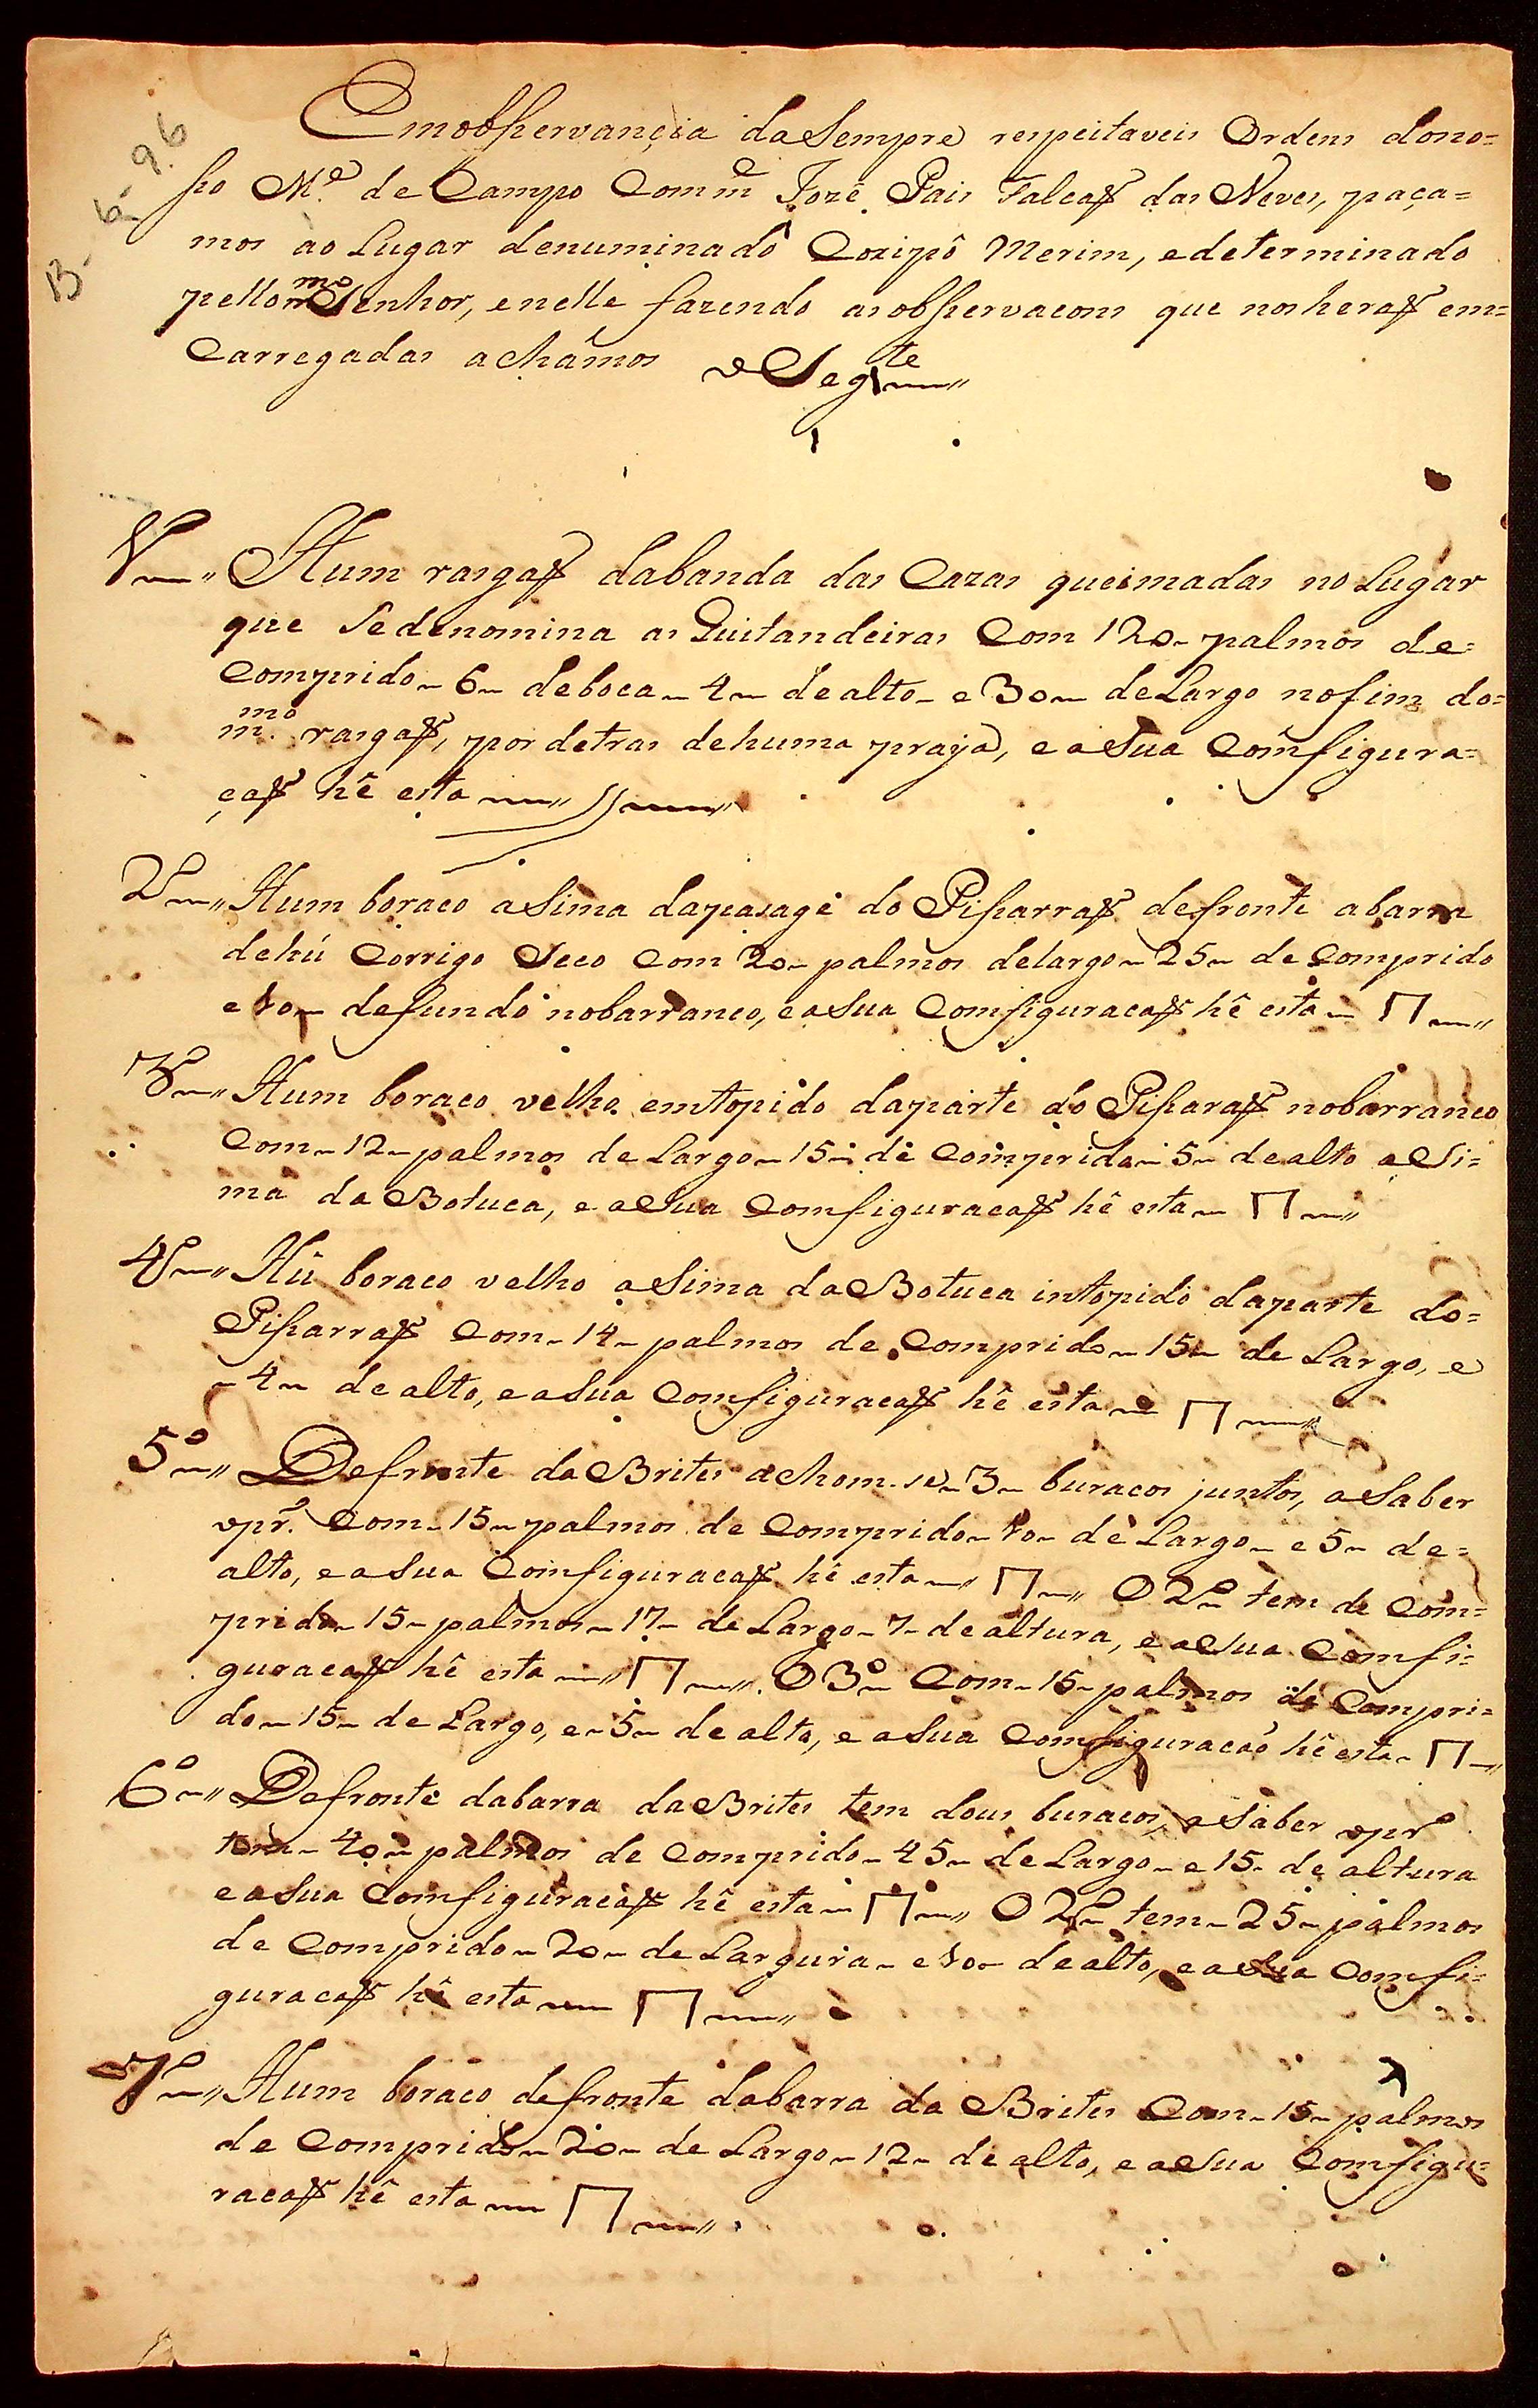 13-6-96
Em obsservançia da Sempre respeitaveis Ordens dono=
sso M.e de Campo Comm.e Jozê Pais Falcaõ das Neves, paça=
mos ao Lugar denuminadô Coxipô Merim, e determinado
pello mmo Senhor, e nelle fazendo as obsservacoins que nos heraõ em=
Carregadas achámos o Segte
1º Hum rasgaõ da banda das Cazas queimadas no Lugar
que Sedenomina as Quitandeiras Com 120 palmos de=
Comprido 6 deboca 4 de alto e 30 deLargo nofim do=
mmo rasgaõ, por detras dehuma praya, e a Sua Comfigura=
çaõ hê esta
2º Hum boraco aSima dapasagê do Pissarraõ defronte abarra
dehú Corrigo Seco Com 20 palmos delargo 25 de Comprido
e 10 defundo nobarranco, e aSua Comfiguracaõ hê esta Π
3º Hum boraco velho emtopido daparte do Pissaraõ nobarranco
Com 12 palmos de Largo 15 de Comprido 5 dealto aSi=
ma da Botuca, e aSua Comfiguracaõ hê esta Π
4º Hû boraco velho aSima da Botuca intopido daparte do=
Pissarraõ Com 14 palmos de Comprido 15 de Largo, e
4 de alto, e aSua Comfiguracaõ hê esta Π
5º Defronte da Brites acham-se 3 buracos juntos, a Saber
opr.º Com 15 palmos de Comprido 10 de Largo e 5 de=
alto, e aSua Comfiguracaõ hê esta Π O 2º tem de Com=
prido 15 palmos 17 de Largo 7 dealtura, e aSua Comfi=
guracaõ hê esta Π O 3º Com 15 palmos de Compri=
do 15 de Largo, e 5 de alto, e aSua Comfiguracaõ hê esta Π
6º Defronte dabarra da Brites tem dous buracos, a Saber opr.º
tem 40 palmos de Comprido 45 de Largo e 15 de altura
e aSua Comfiguracaõ hê esta Π O 2º tem 25 palmos
de Comprido 20 de Largura e 10 dealto, e aSua Comfi=
guracaõ hê esta Π
7º Hum boraco defronte dabarra da Brites Com 15 palmos
de Comprido 20 de Largo 12 de alto, e aSua Comfigu=
racaõ hê esta Π